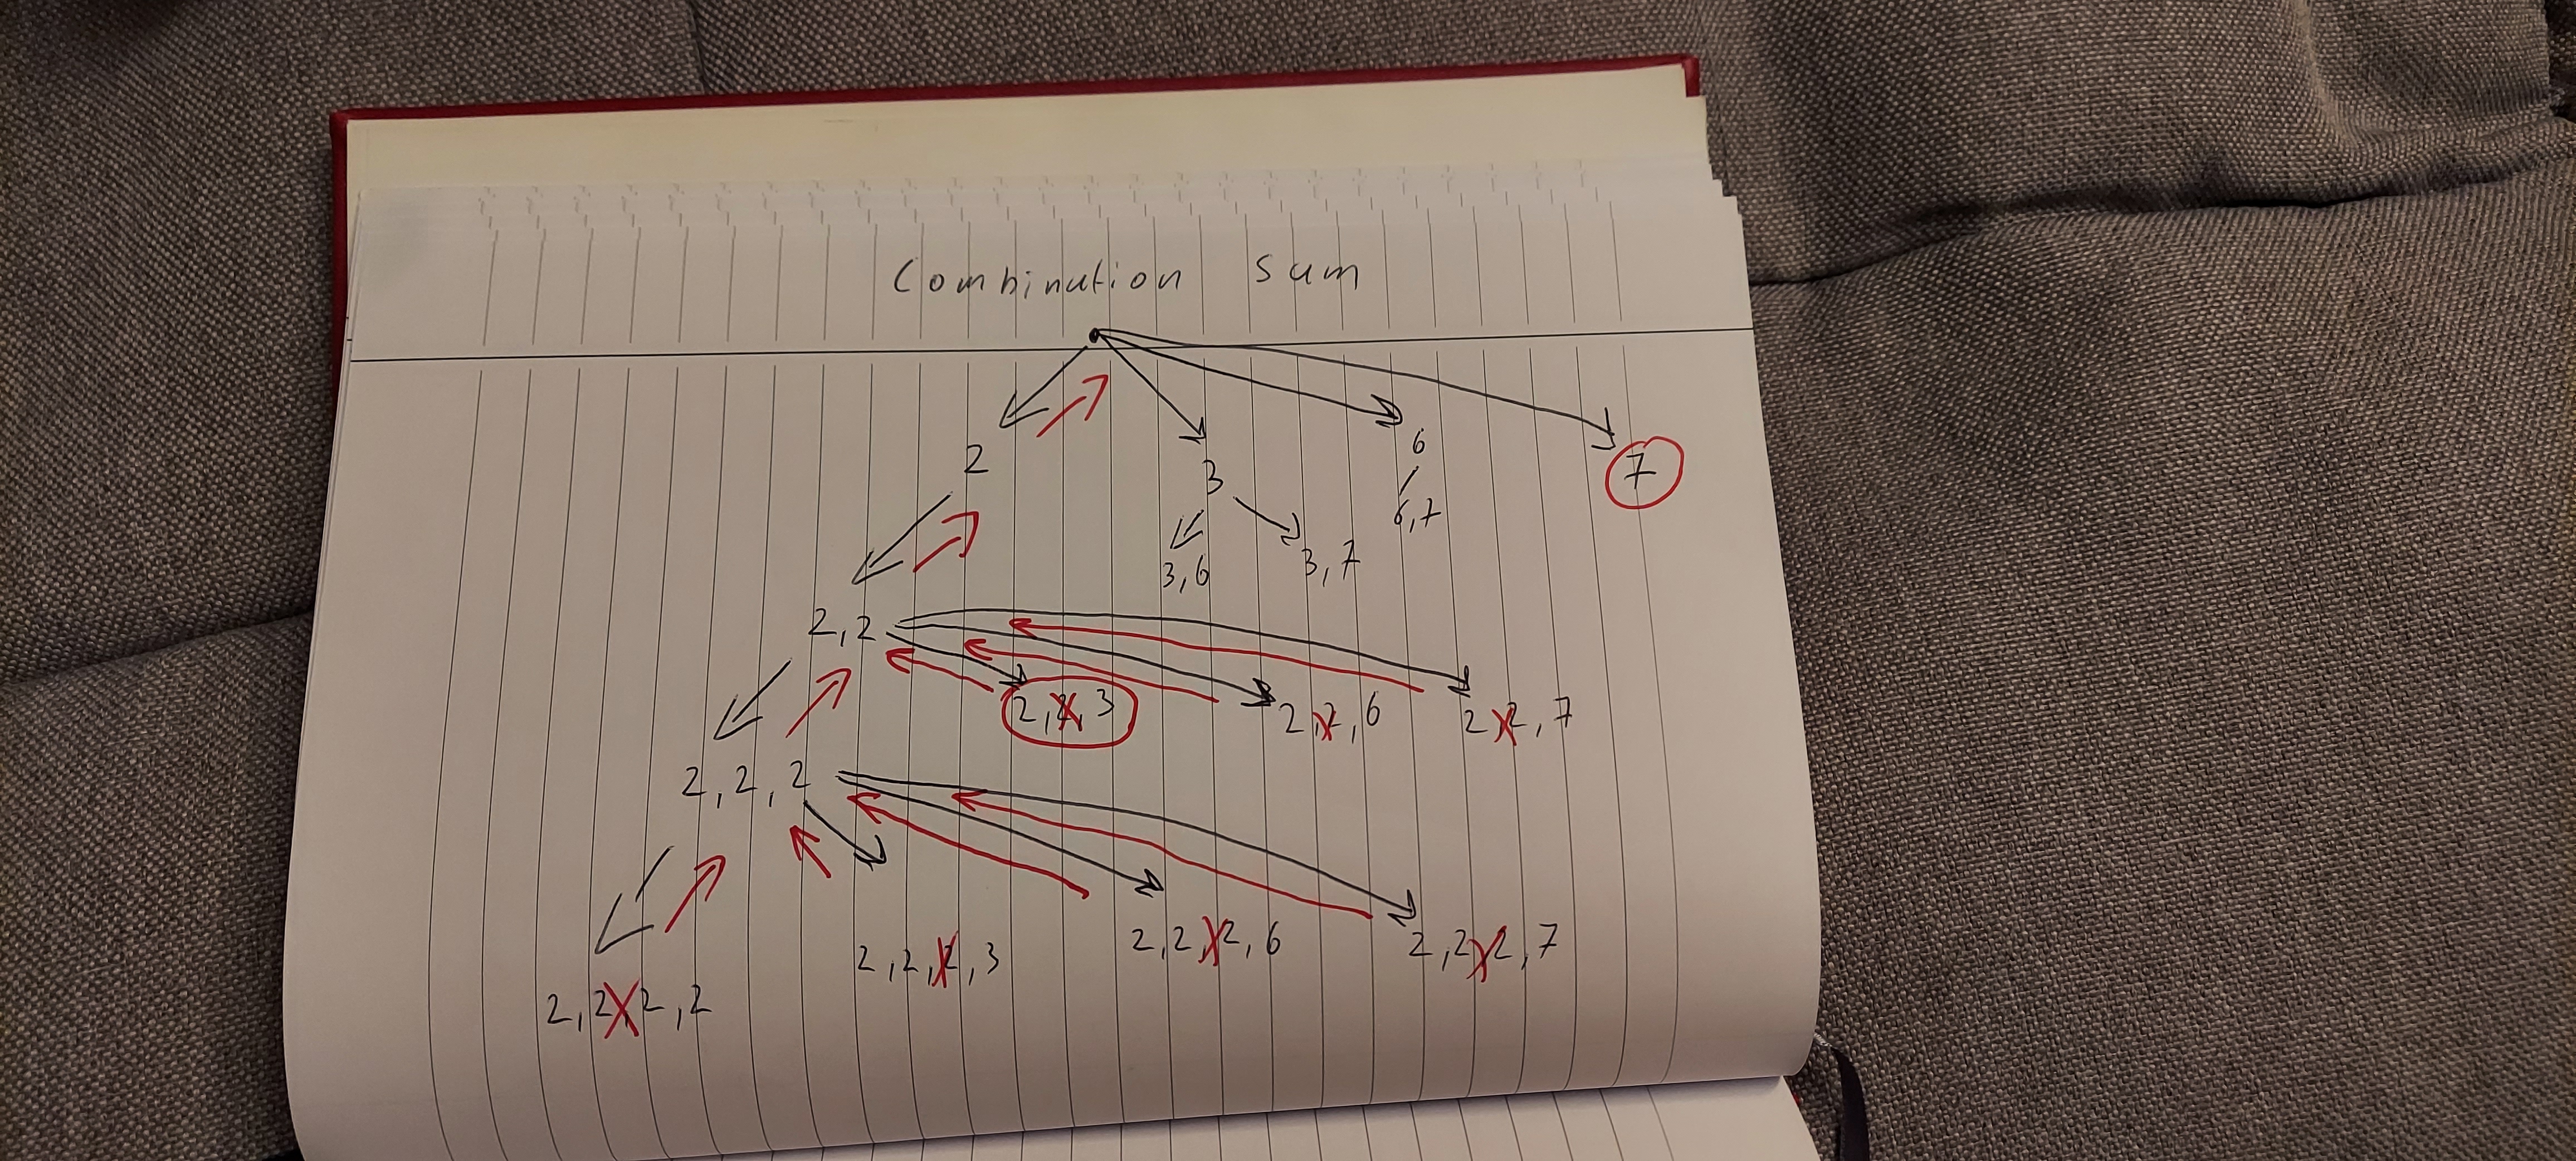 Combination Sum
2
3
6
7
6,7
3,6
3,7
2,2
2,2,3
2,2,6
2,2,7
2,2,2
2,2,2,3
2,2,2,6
2,2,2,7
2,2,2,2